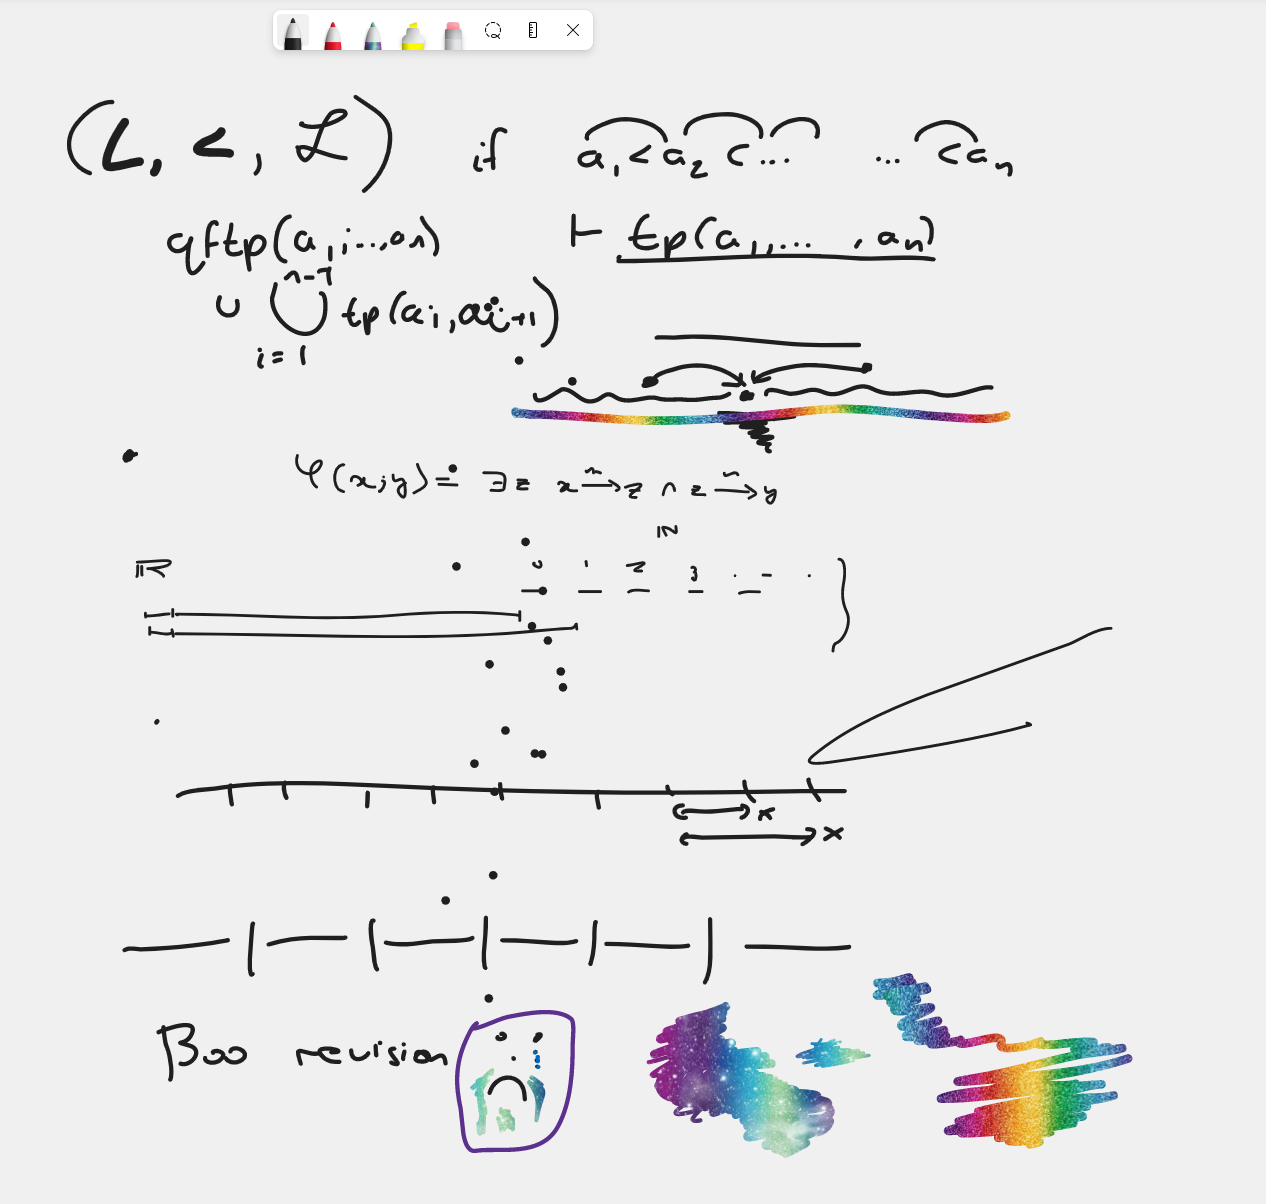 (L, <, ℒ) if a₁ < a₂ < ... ... < aₙ
qftp(a₁,...,aₙ) ⊢ tp(a₁,... , aₙ)
n-1
∪ ⋃ tp(aᵢ, aᵢ₊₁)
i = 1
φ(x;y) = ∃z x →ᵐ z ∧ z →ⁿ y
ℕ
ℝ
0 1 2 3 . - .
x
x
Boo revision